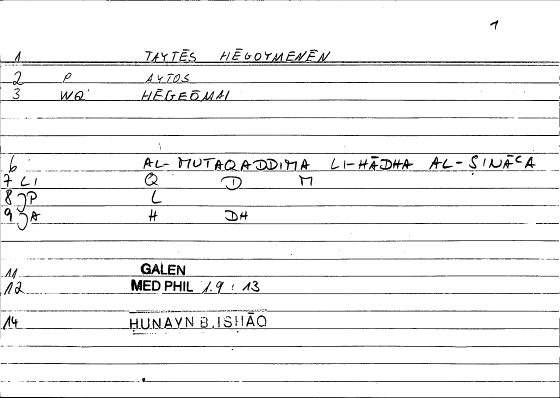 1
1 TAYTĒS HĒGOYMENĒN
2 P AYTOS
3 WQ HĒGEŌMAI
6 AL-MUTAQADDIMA LI-HĀDHA AL-ṢINĀCA
7 LI Q D M
8 JP L
9 JA H DH
11 GALEN
12 MED PHIL 1.9 : 13
14 ḤUNAYN B. ISḤĀQ